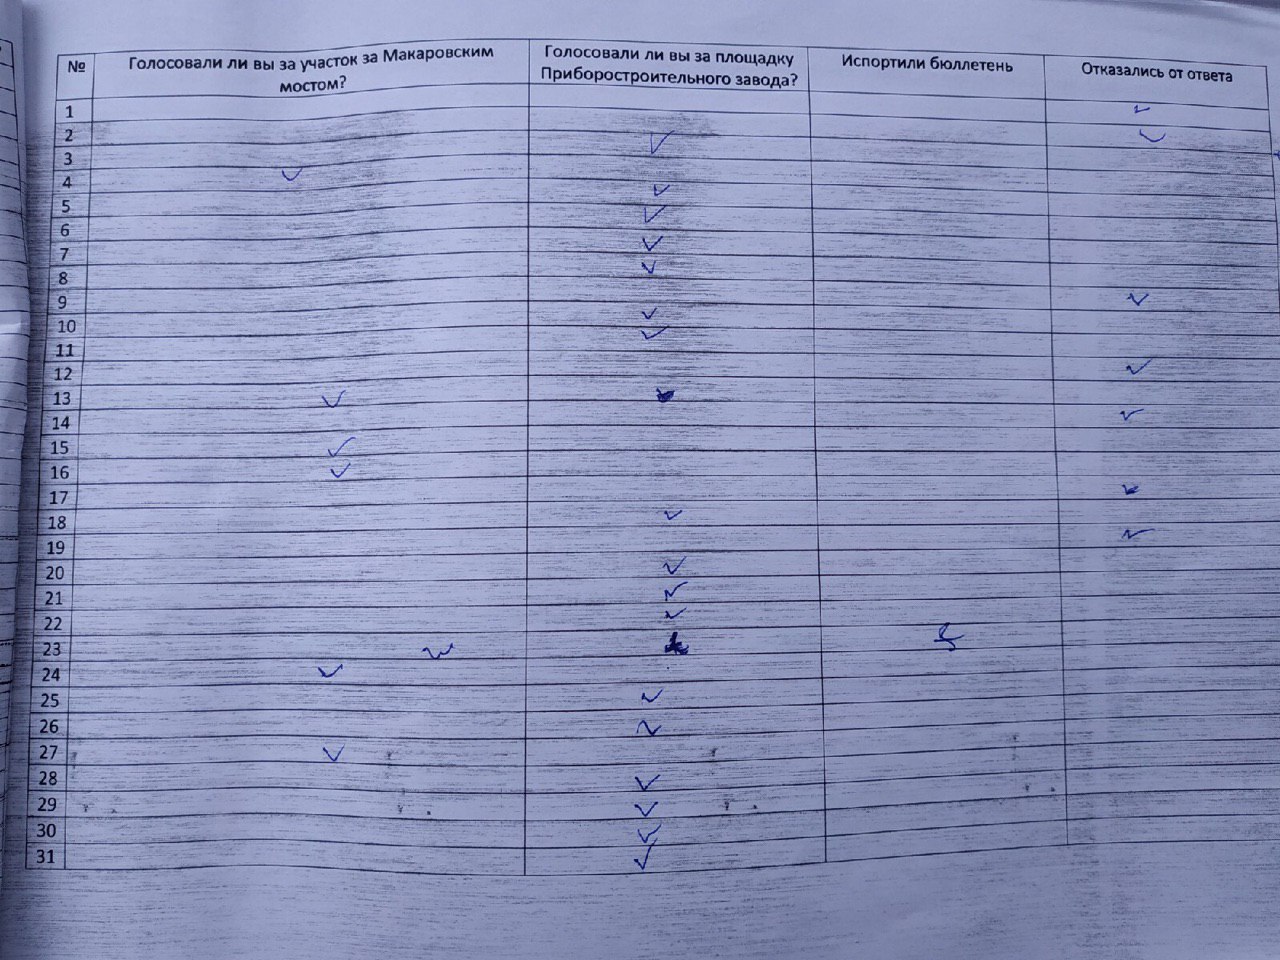 № Голосовали ли вы за участок за Макаровским мостом? Голосовали ли вы за площадку Приборостроительного завода? Испортили бюллетень Отказались от ответа
1
2
3
4
5
6
7
8
9
10
11
12
13
14
15
16
17
18
19
20
21
22
23
24
25
26
27
28
29
30
31